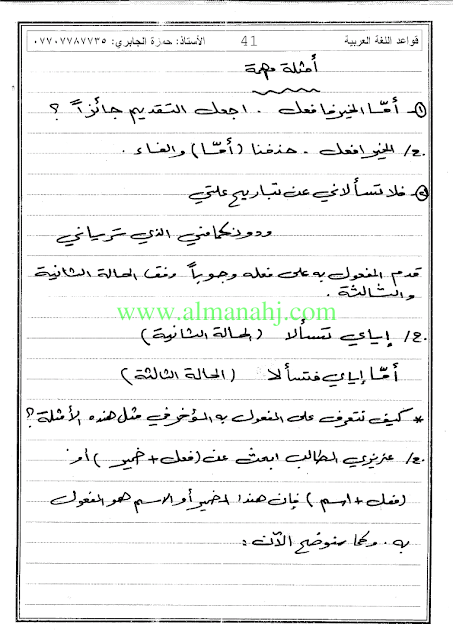 قواعد اللغة العربية 41 الأستاذ: حمزة الجابري: ٠٧٧٠٧٧٨٧٧٣٥
أمثلة مهمة
١- أمّا الخير فافعل . اجعل التقديم جائزاً ؟
ج/ الخير افعل . حذفنا (أمّا) والفاء .
٢- فلا تسألاني عن تباريح علتي
ودونكما مني الذي ترياني
قدم المفعول به على فعله وجوباً وفق الحالة الثانية
والثالثة .
www.almanahj.com
ج/ إياي تسألا (الحالة الثانية)
أمّا إياي فتسألا (الحالة الثالثة)
* كيف نتعرف على المفعول به المؤخر في مثل هذه الأمثلة ؟
ج/ عزيزي الطالب ابحث عن (فعل + ضمير) أو
(فعل + اسم) فإن هذا الضمير أو الاسم هو المفعول
به . وكما سنوضح الآن :